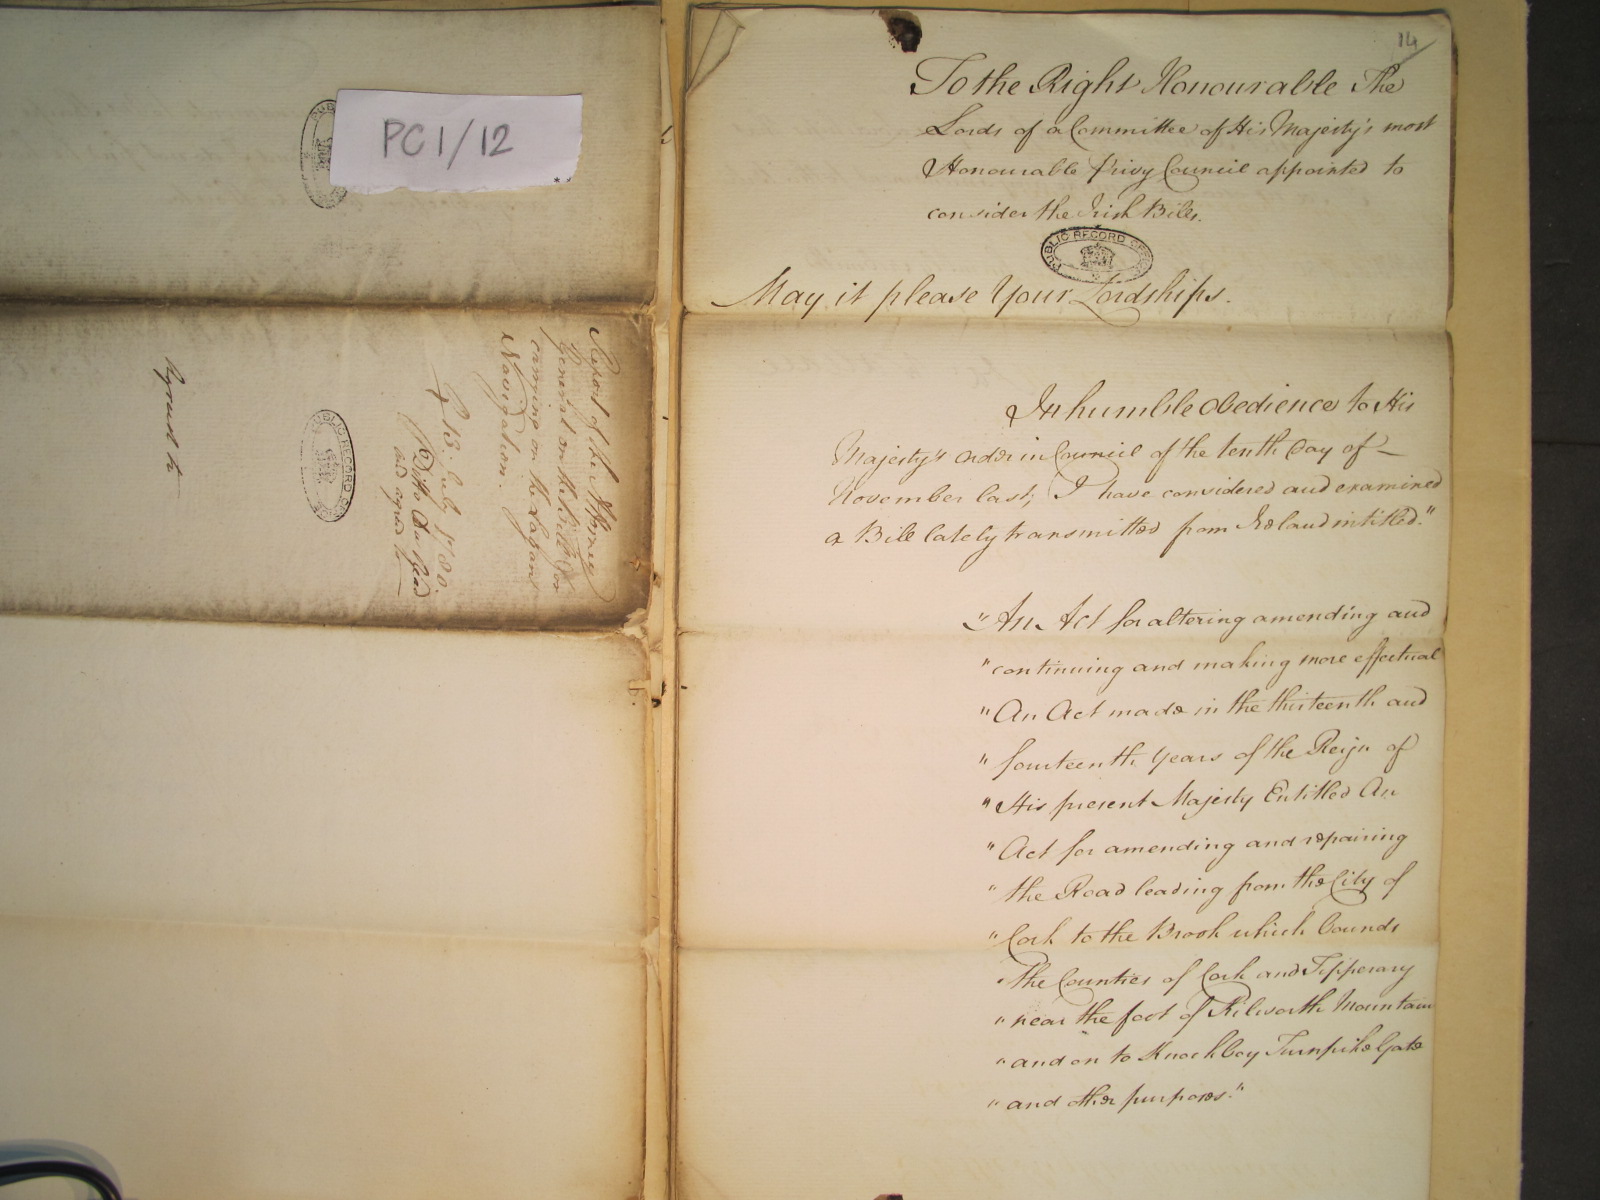 PC1/12
Report of the Attorney
General on the Bill for
carrying on the Lagan
Navigation.
13. July 1780.
Ditto
and agreed to
Agreed to
PUBLIC RECORD OFFICE
14
To the Right Honourable The
Lords of a Committee of His Majesty's most
Honourable Privy Council appointed to
consider the Irish Bills.
PUBLIC RECORD OFFICE
May it please Your Lordships.
In humble obedience to His
Majesty's order in Council of the tenth Day of
November last; I have considered and examined
a Bill lately transmitted from Ireland intitled."
"An Act for altering amending and
"continuing and making more effectual
"An Act made in the thirteenth and
"fourteenth Years of the Reign of
"His present Majesty Entitled An
"Act for amending and repairing
"the Road leading from the City of
"Cork to the Brook which bounds
"the Counties of Cork and Tipperary
"near the foot of Kilworth Mountain
"and on to Knockboy Turnpike Gate
"and other purposes."